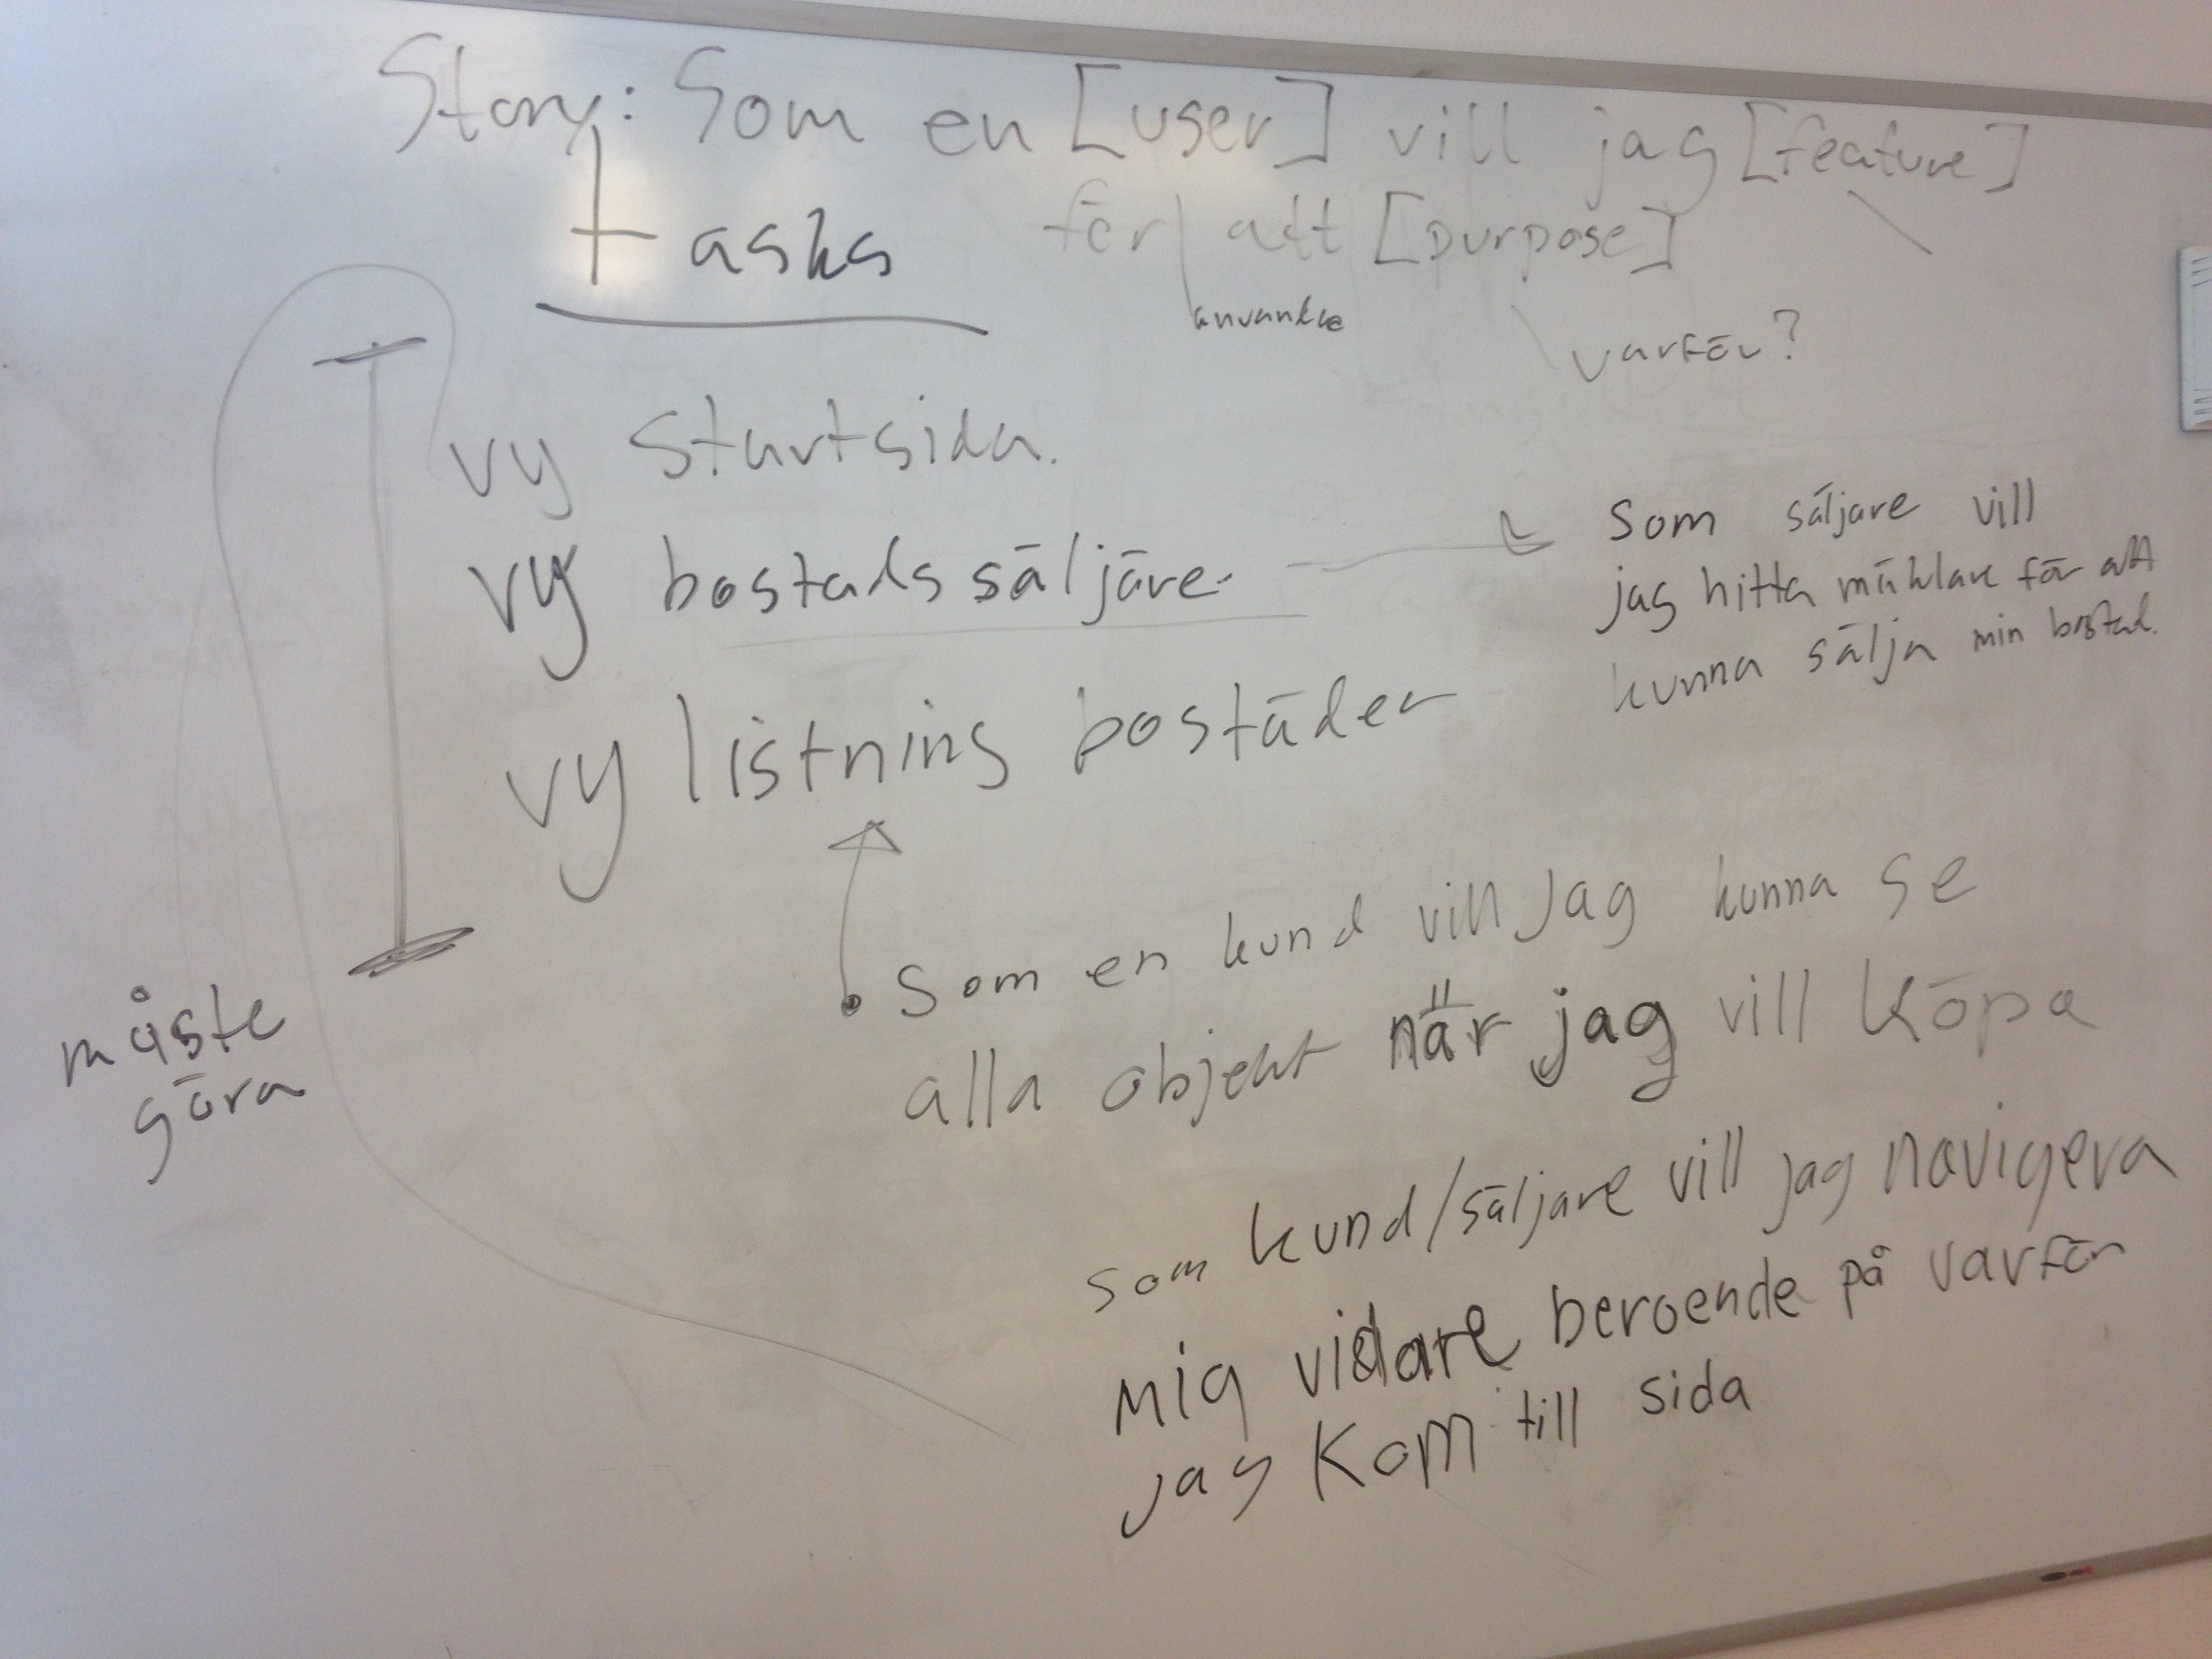 Story: Som en [user] vill jag [feature]
för att [purpose]
tasks
varför?
vy startsida.
vy bostadssäljare.
Som säljare vill
jag hitta mäklare för att
kunna sälja min bostad.
vy listning bostäder
måste
göra
Som en kund vill jag kunna se
alla objekt när jag vill köpa
som kund/säljare vill jag navigera
mig vidare beroende på varför
jag kom till sida